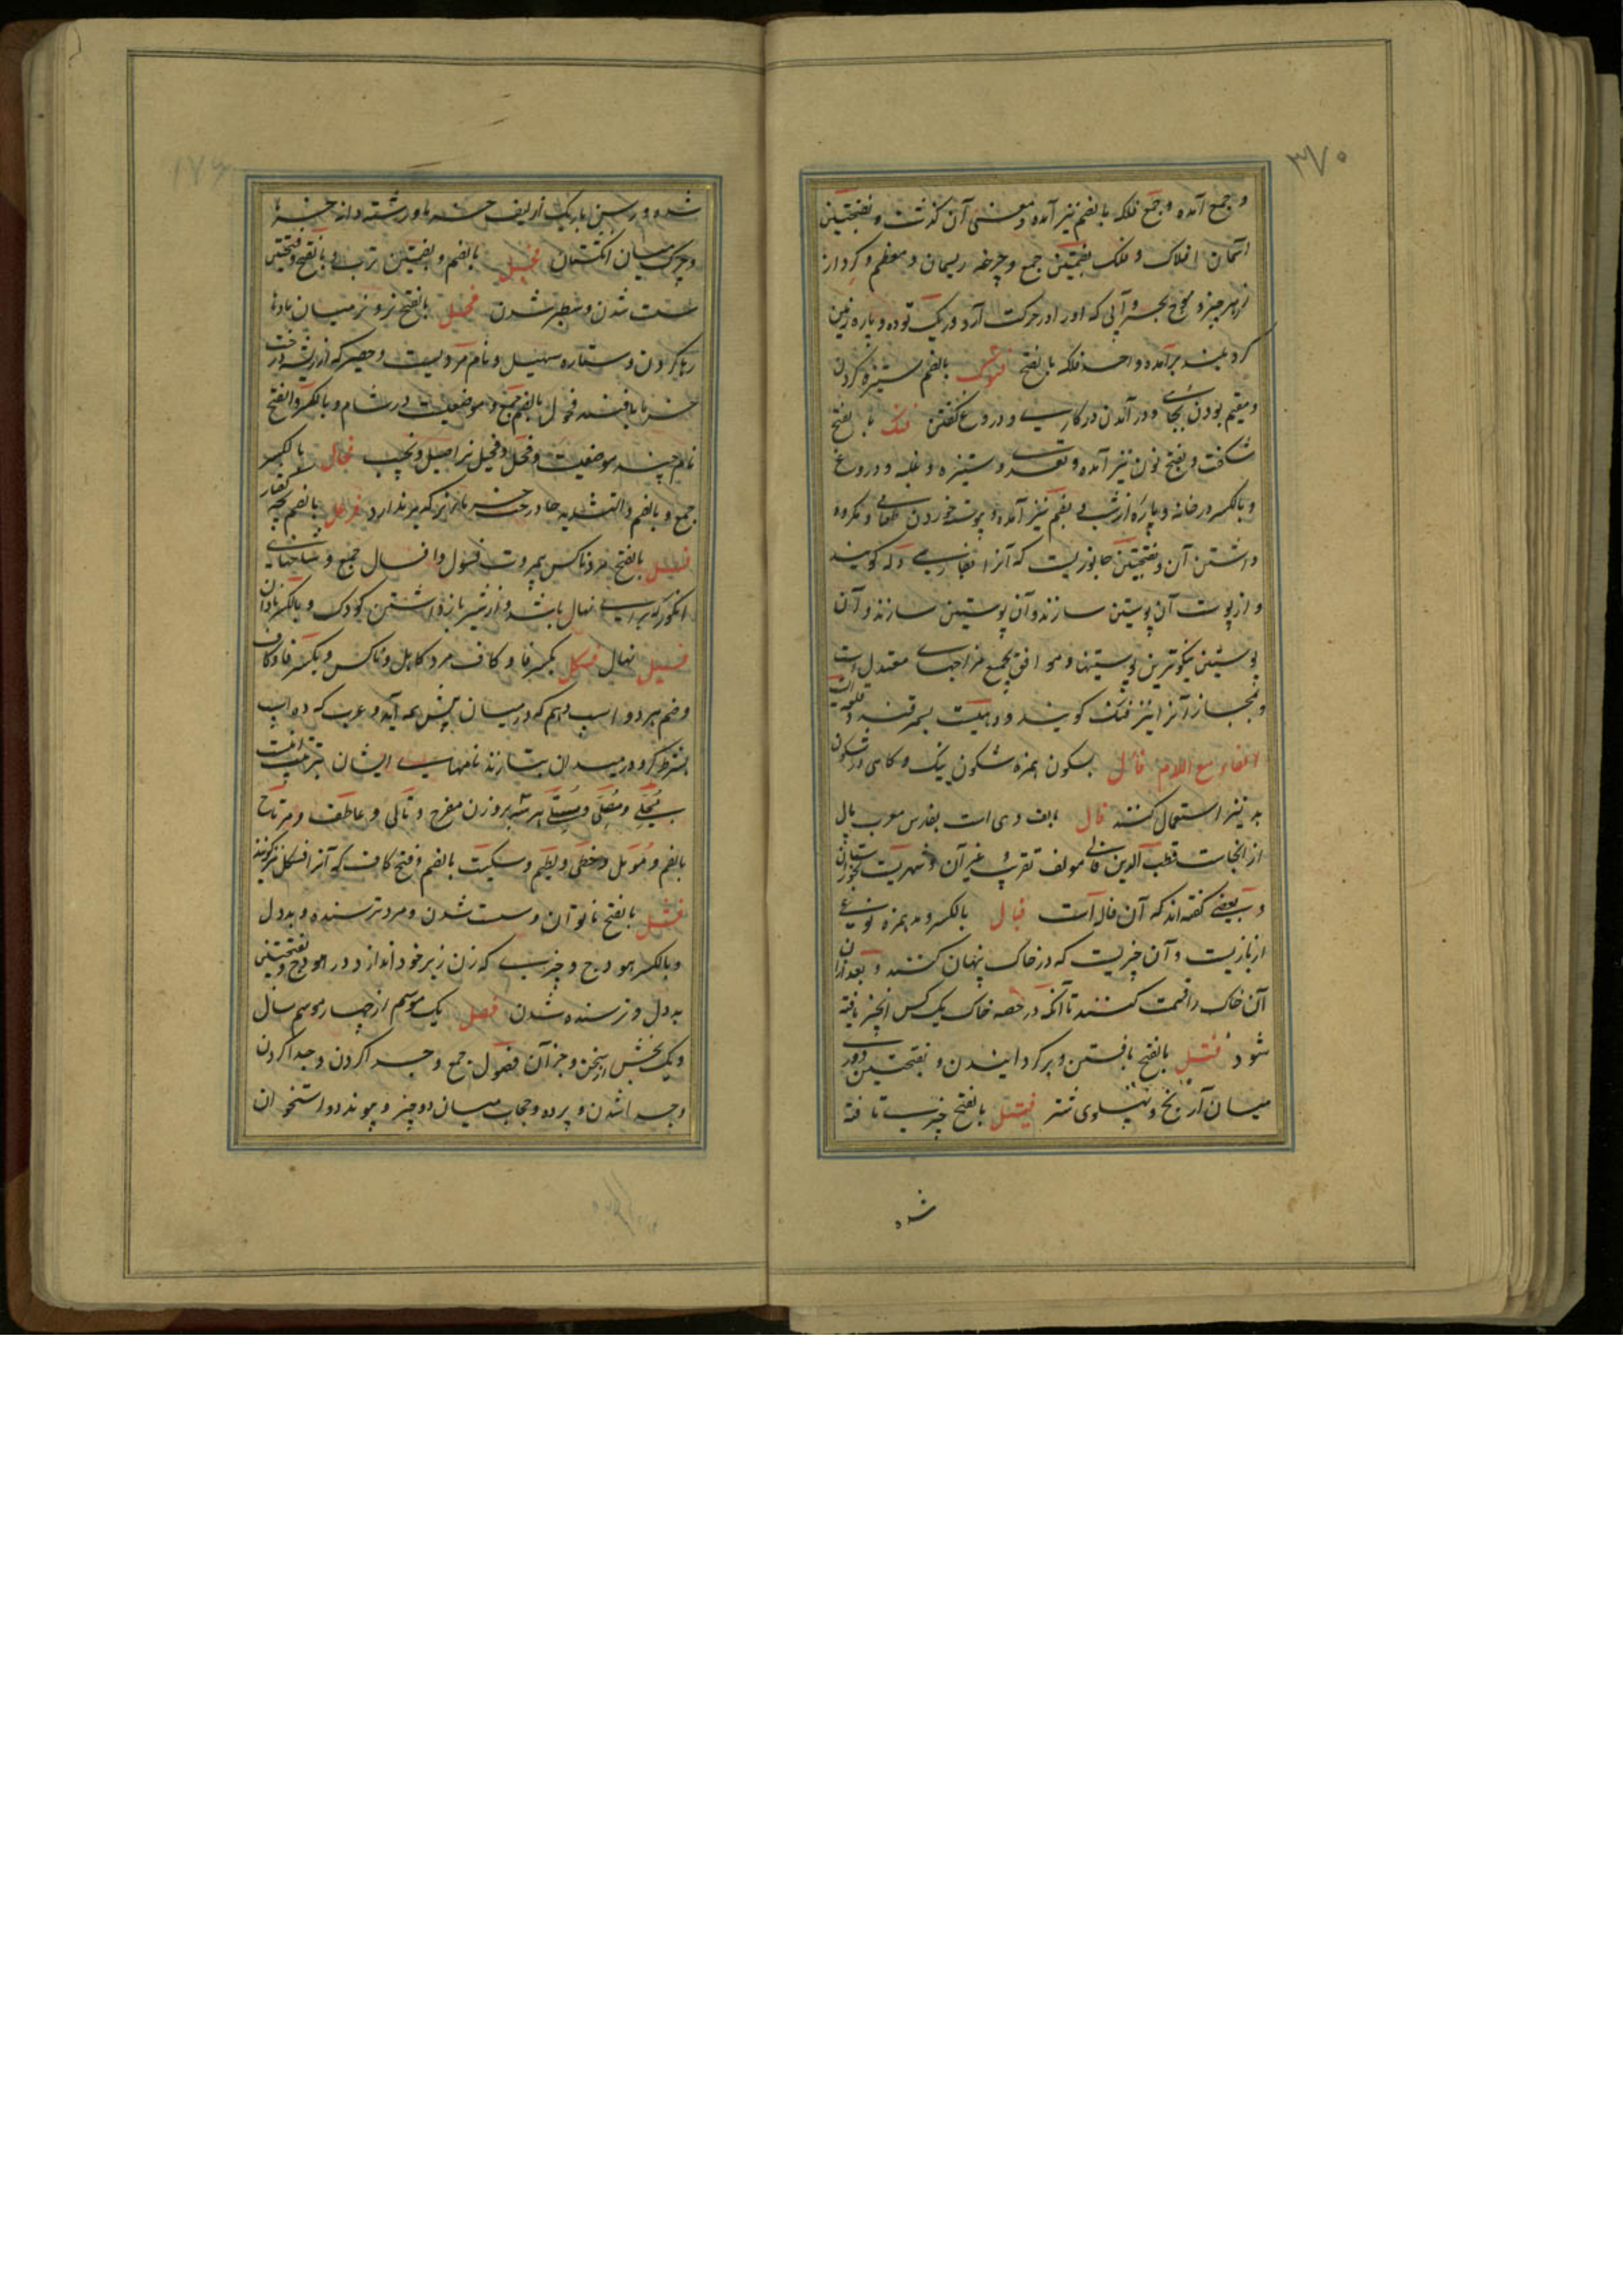 ۳۷۰
و جمع آمده و جمع فلکه بالضم نیز آمده و معنی آن گذشت و بفتحتین
آسمان افلاک و فلک بضمتین جمع و چرخه ریسمان و معظم و گردار
از هر چیز و موج بحر و آبی که او را در حرکت آرد و ریک توده و پاره زمین
گرد بلند برآمده واحد فلکه بالفتح فنوک بالضم ستیزه کردن
و مقیم بودن بجای و در آمدن در کاری و دروغ گفتن فنک بالفتح
شگفت و بفتح نون نیز آمده و تعدی و ستیزه و غلبه و دروغ
و بالکسر در خانه و پاره از شب و بضم نیز آمده و پیوسته خوردن طعامی و مکروه
داشتن آن و بفتحتین جانوریست که آنرا بفارسی دله گویند
و از پوست آن پوستین سازند و آن پوستین سازند و آن
پوستین نیکوترین پوستینها و موافق بجمیع مزاجهای معتدل است
و بمجاز آنرا نیز فنک گویند و دهیست بسمرقند و قلعه ایست
الفاء مع اللام فأل بسکون همزه شگون نیک و گاهی در شگون
بد نیز استعمال کنند فال بالف دهی است بفارس معرب پال
از انجاست قطب الدین فالی مولف تقریب و غیر آن و شهریست بخوزستان
و بعضی گفته اند که آن فال است فیال بالکسر و بهمزه نوعی
از بازیست و آن چیزیست که در خاک پنهان کنند و بعد ازان
آن خاک را قسمت کنند تا آنکه در حصه خاک یک کس آن چیز یافته
شود فتل بالفتح بافتن و برگردانیدن و بفتحتین دوری
میان آرنج و پهلوی شتر فتیل بالفتح چیزیست تافته
شده
شده و رسن باریک از لیف خرما و رشته دانه خرما
و چرک میان انگشتان فجل بالضم و بضمتین ترب و بالفتح و بفتحتین
سست شدن و سطبر شدن فحل بالفتح نر و نر میان مادها
رها کردن و ستاره سهیل و نام مردیست و حصیر که از ریشه درخت
خرما بافند فحول بالضم جمع و موضعیست در شام و بالکسر و الفتح
نام چند موضعیست و فحل و فحیل نر اصیل و نجیب فحال بالکسر
جمع و بالضم و التشدید حا درخت خرمای نر که بر ندارد فرعل بالضم بچه کفتار
فسل بالفتح مرد ناکس بی مروت فسول و افسال جمع و شاخهای
انگور که برای نهال باشد و از شیر باز داشتن کودک و بالکسر نادان
فسیل نهال فسکل بکسر فا و کاف مرد کاهل و ناکس و بکسر فا و کاف
و ضم هر دو اسب دهم که در میان پس همه آید و عرب که ده اسب
بشرط گرو در میدان بتازند نامهای ایشان بترتیب اینست
مجلی و مصلی و مسلی هر سه بر وزن مفرح و تالی و عاطف و مرتاح
بالضم و مؤمل و حظی و لطیم و سکیت بالضم و فتح کاف که آنرا فسکل نیز گویند
فشل بالفتح ناتوان و سست شدن و مرد ترسنده و بد دل
و بالکسر هودج و چیزی که زن زیر خود اندازد در هودج و بفتحتین
بد دل و ترسنده شدن فصل یک موسم از چهار موسم سال
و یک بخش از سخن و جز آن فصول جمع و جدا کردن و جدا کردن
و جدا شدن و پرده و حجاب میان دو چیز و پیوند دو استخوان